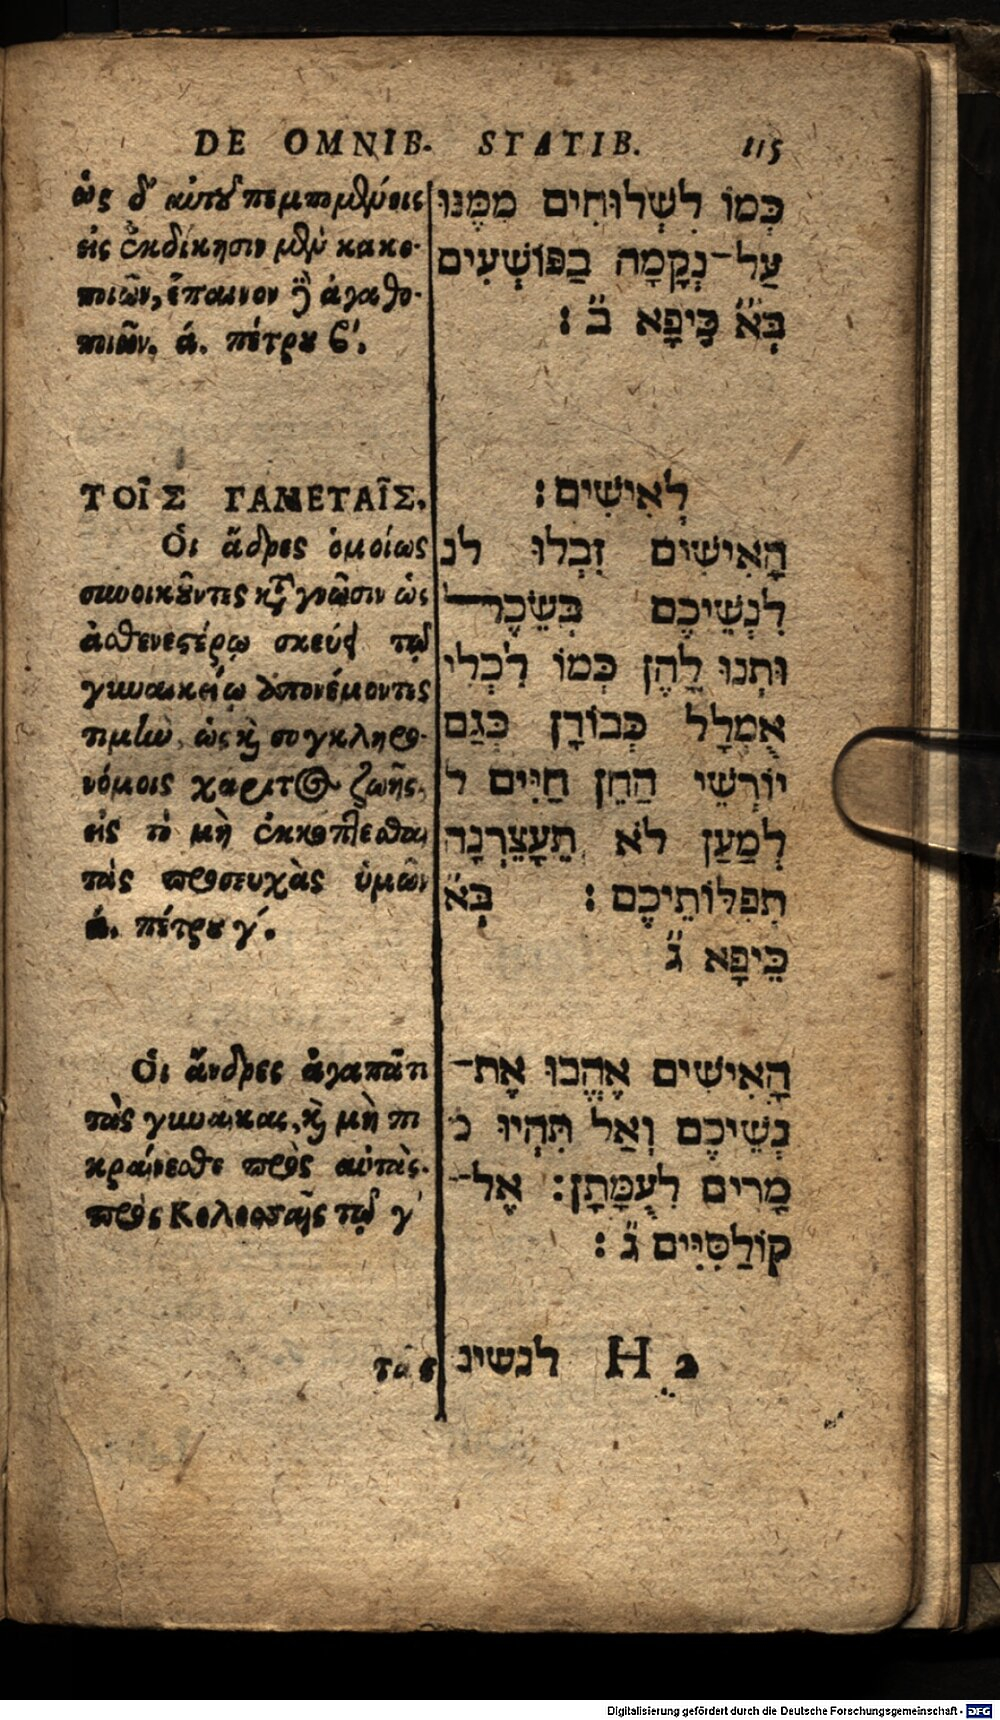 DE OMNIB. STATIB. 115
ὡς δι' αὐτοῦ πεμπομένοις
εἰς ἐκδίκησιν μὲν κακο-
ποιῶν, ἔπαινον δὲ ἀγαθο-
ποιῶν. ά. πέτρου β'.
ΤΟΙ͂Σ ΓΑΜΕΤΑΙ͂Σ.
Οἱ ἄνδρες ὁμοίως
συνοικοῦντες κατὰ γνῶσιν ὡς
ἀσθενεστέρῳ σκεύει τῷ
γυναικείῳ ἀπονέμοντες
τιμὴν, ὡς καὶ συγκληρο-
νόμοις χάριτος ζωῆς,
εἰς τὸ μὴ ἐκκόπτεσθαι
τὰς προσευχὰς ὑμῶν
ά. πέτρου γ'.
Οἱ ἄνδρες ἀγαπᾶτε
τὰς γυναῖκας, καὶ μὴ πι
κραίνεσθε πρὸς αὐτὰς.
πρὸς Κολοσσαεῖς τῷ γ'
τὰς
כְּמוֹ לִשְׁלוּחִים מִמֶּנּוּ
עַל־נְקָמָה בַּפּוֹשְׁעִים
בְּא״ כֵּיפָא ב״ :
לְאִישִׁים :
הָאִישִׁים זִבְלוּ לנ
לִנְשֵׁיכֶם בְּשֵׂכֶל
וּתְנוּ לָהֶן כְּמוֹ לִכְלִי
אֻמְלָל כְּבוֹדָן כְּגַם
יוֹרְשֵׁי הַחֵן חַיִּים ל
לְמַעַן לֹא תֵעָצַרְנָה
תְפִלּוֹתֵיכֶם : בְּא״
כֵּיפָא ג״
הָאִישִׁים אֶהֱבוּ אֶת־
נְשֵׁיכֶם וְאַל תִּהְיוּ מ
מָרִים לְעֻמָּתָן : אֶל־
קוֹלַסִּיִּים ג״ :
H 2 לנשינ
Digitalisierung gefördert durch die Deutsche Forschungsgemeinschaft - DFG